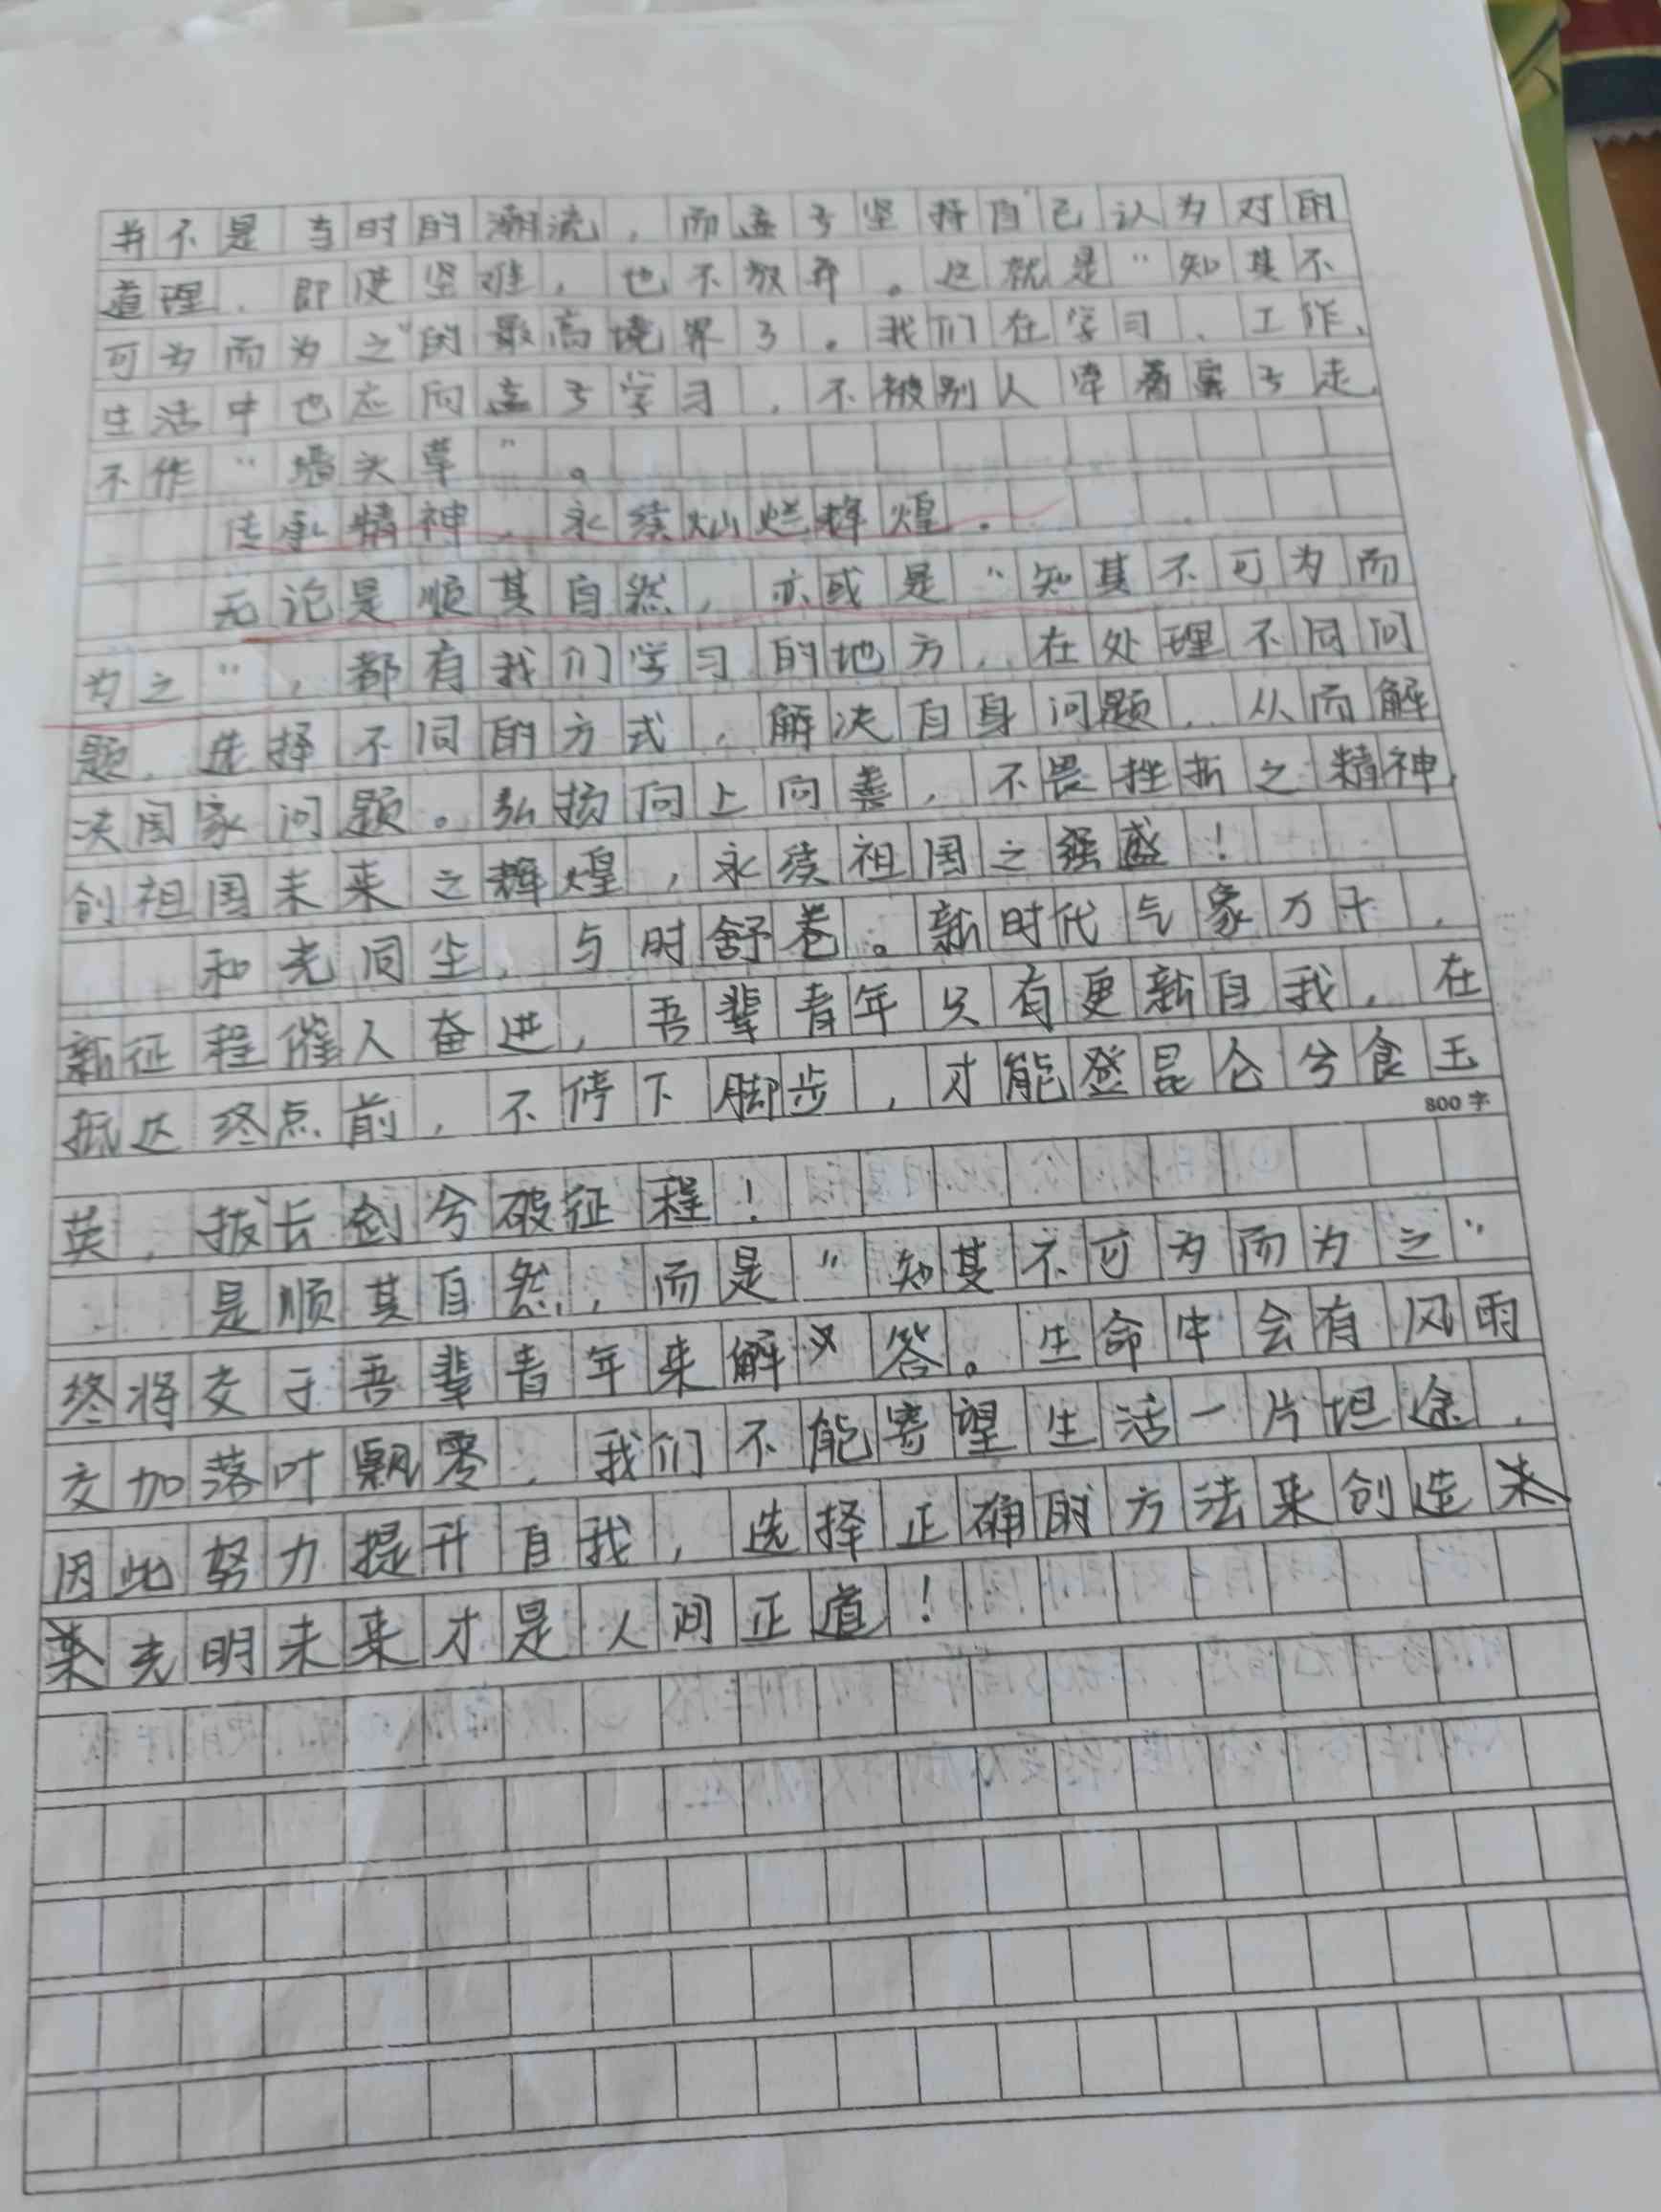 并不是当时的潮流，而孟子坚持自己认为对的
道理，即使坚难，也不放弃。这就是“知其不
可为而为之”的最高境界了。我们在学习、工作、
生活中也应向孟子学习，不被别人牵着鼻子走，
不作“墙头草”。
传承精神，永续灿烂辉煌。
无论是顺其自然，亦或是“知其不可为而
为之”，都有我们学习的地方，在处理不同问
题，选择不同的方式，解决自身问题，从而解
决国家问题。弘扬向上向善，不畏挫折之精神，
创祖国未来之辉煌，永续祖国之强盛！
和光同尘，与时舒卷。新时代气象万千，
新征程催人奋进，吾辈青年只有更新自我，在
抵达终点前，不停下脚步，才能登昆仑兮食玉
800字
英，拔长剑兮破征程！
是顺其自然，而是“知其不可为而为之”
终将交于吾辈青年来解答。生命中会有风雨
交加落叶飘零，我们不能寄望生活一片坦途，
因此努力提升自我，选择正确的方法来创造
光明未来才是人间正道！